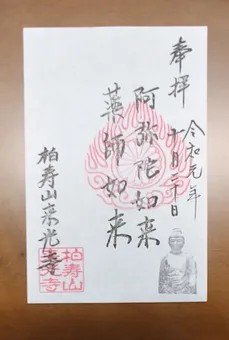 奉拝
令和元年
十月二十日
阿弥陀如来
薬師如来
柏寿山来光寺
柏寿山
来光寺